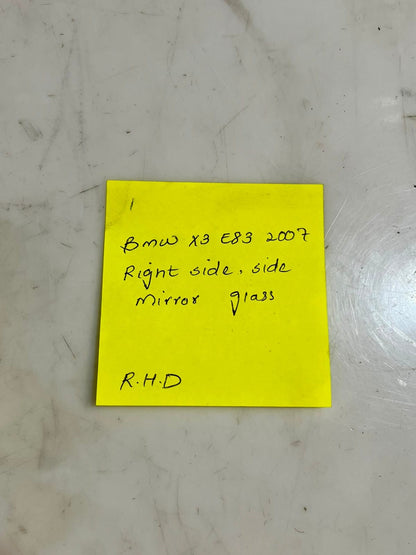 BMW X3 E83 2007
Right side, side
mirror glass
R.H.D